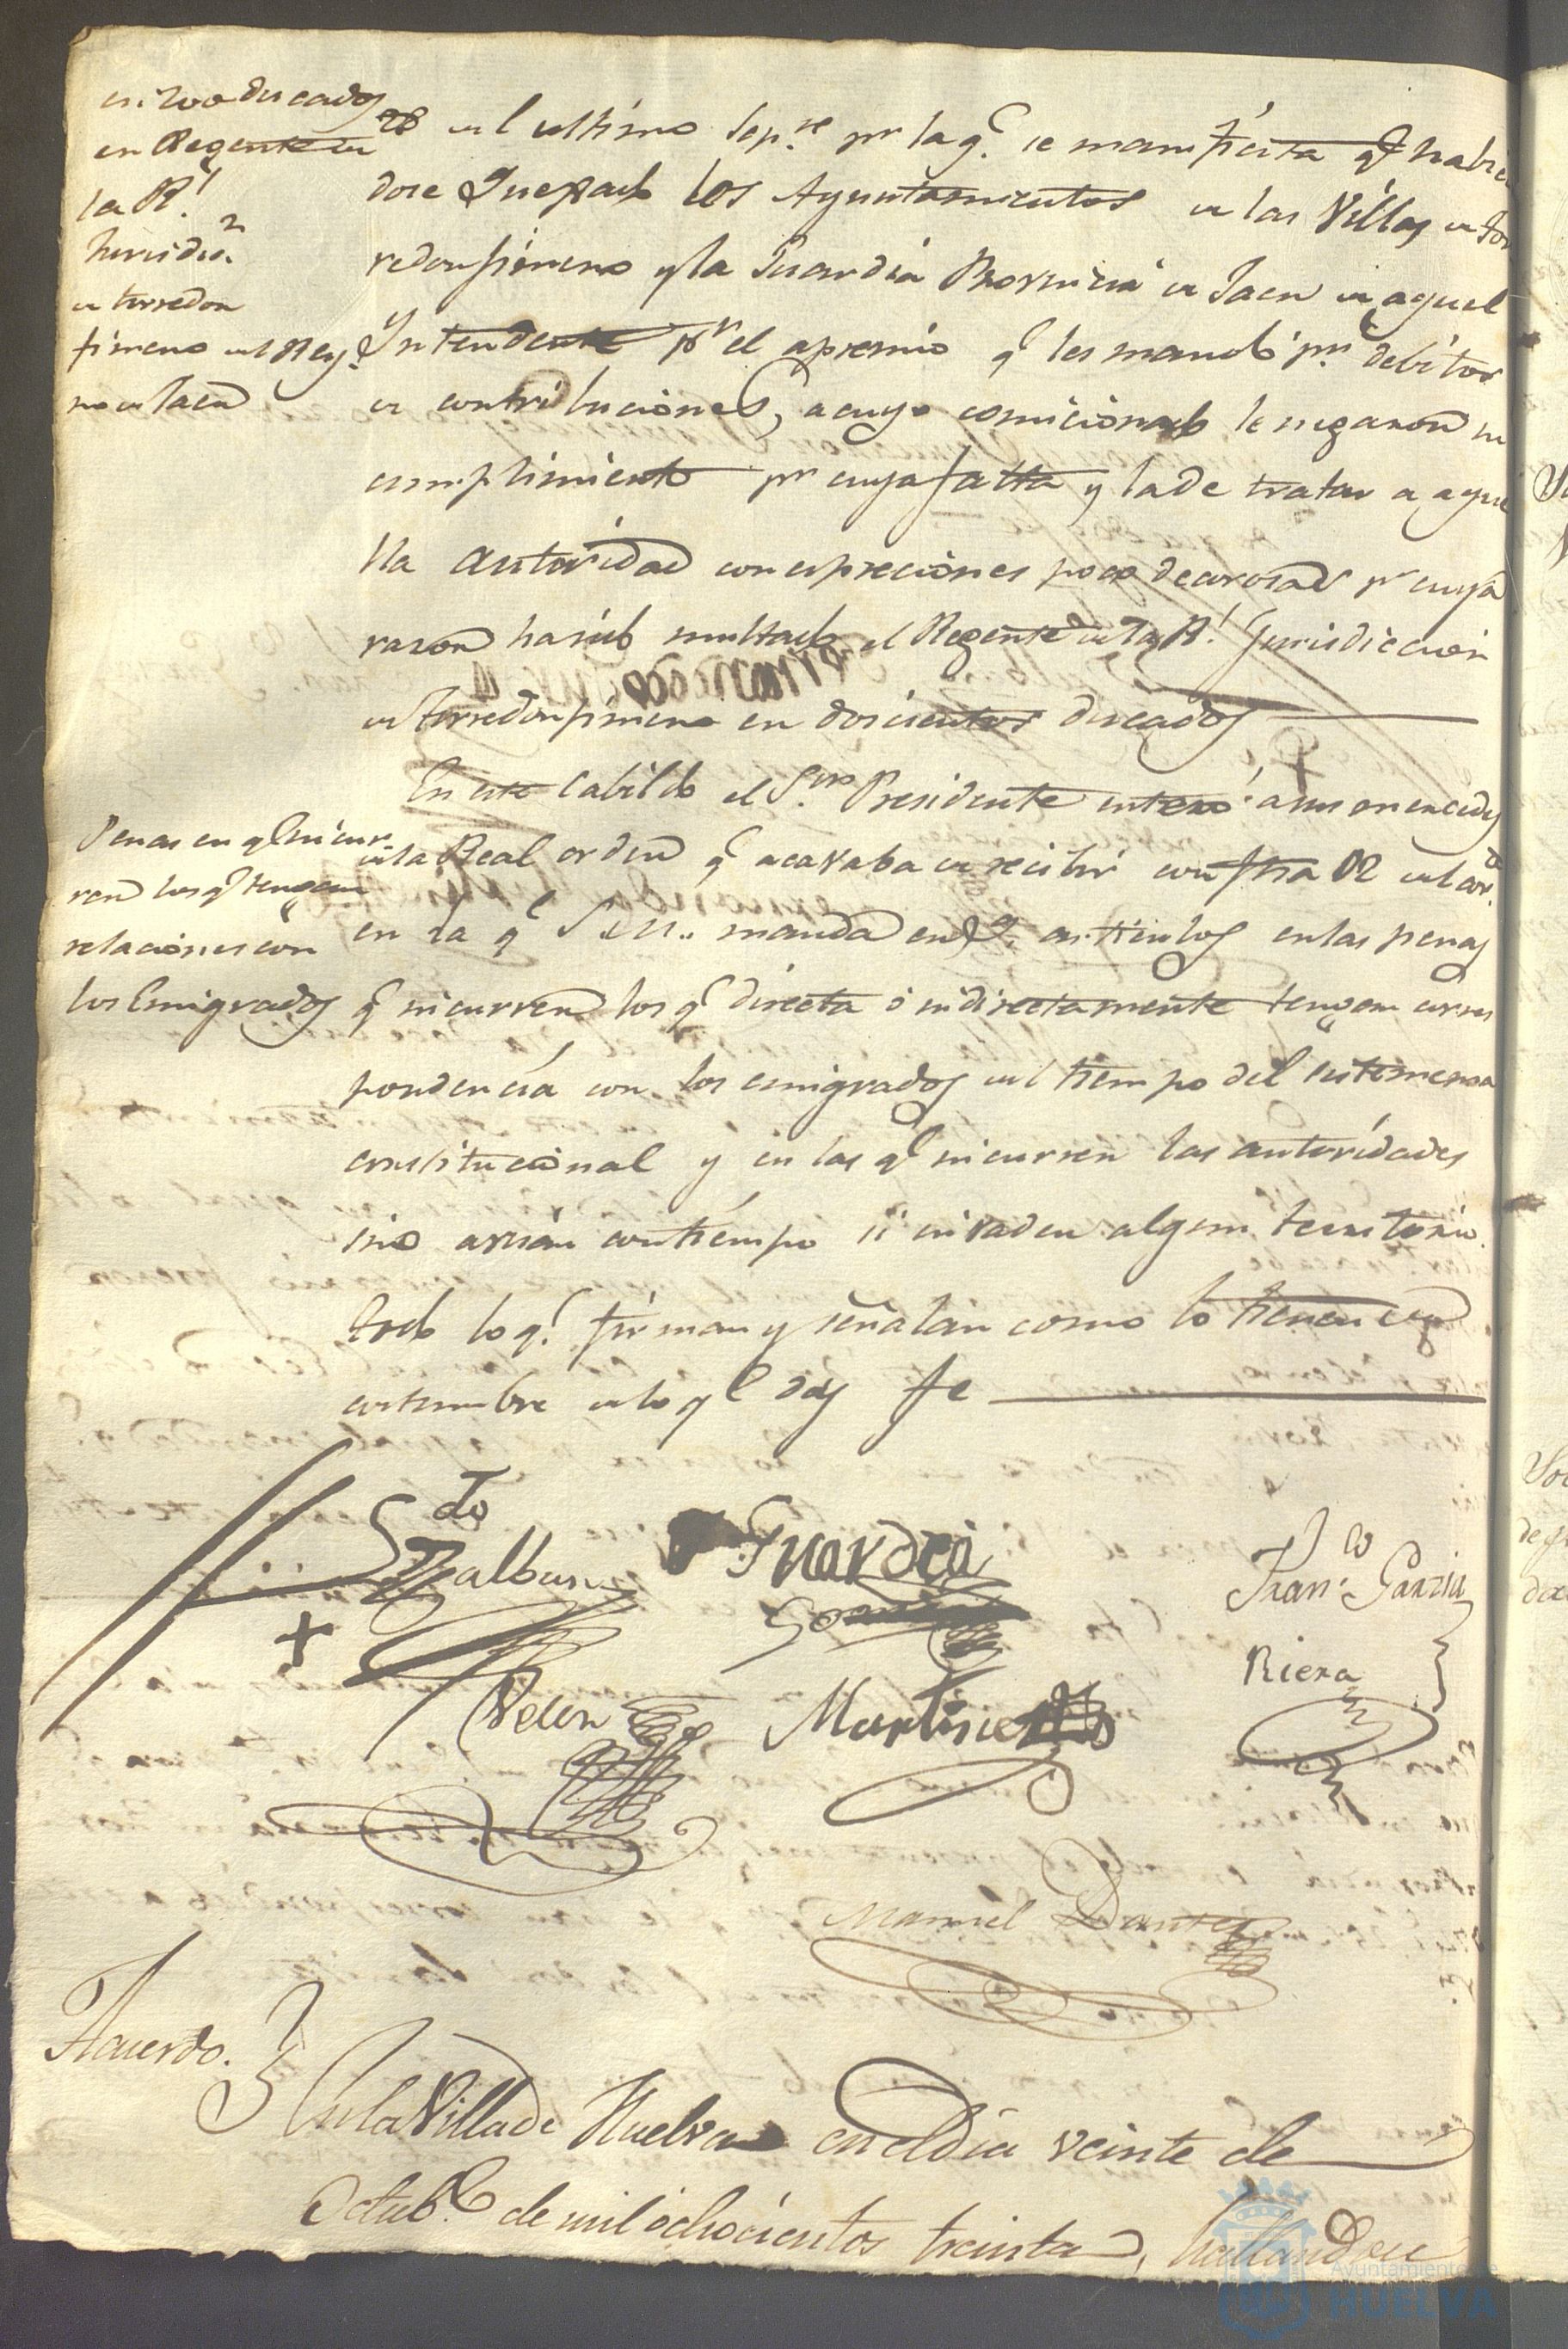 en 200 ducados
en Regente de
la Rl.
Jurisdin.
de torredon
gimeno del Rey
no de Jaen
28 del ultimo Sepre. pr. la q. se manifiesta q. habien
dose Quexado los Ayuntamientos de las Villas de Tor
redonjimeno y la Guardia Provincia de Jaen de aquel
Yntendente pr. el apremio q. les mandó pr. debitos
de contribuciones, a cuyo comicionado le negaron su
cumplimiento pr. cuya falta y la de tratar a aque
lla autoridad con espreciones poco decorosas pr. cuya
razon ha sido multado el Regente de la Rl. Jurisdiccion
de Torredonjimeno en doscientos ducados
Penas en q. incur
ren los q. tengan
relaciones con
los Emigrados
En este Cabildo el Sor. Presidente enteró a sus mercedes
de la Real orden q. acavaba de recivir con fha 12 del cor.
en la q. S. M. manda en artículos en las penas
q. incurren los q. directa ó indirectamente tengan corres
pondencia con los emigrados del tiempo del sistema
constitucional y en las q. incurren las autoridades
sino avisan con tiempo si invaden algun territorio.
todo lo q. firman y señalan como lo tienen de
costumbre de lo q. doy fe
Guardia
Franco. Garzia
+
Riera
Martinez
Manuel
Acuerdo.
En la Villa de Huelva en el dia veinte de
Octube. de mil ochocientos treinta, hallandose
Ayuntamiento de
HUELVA